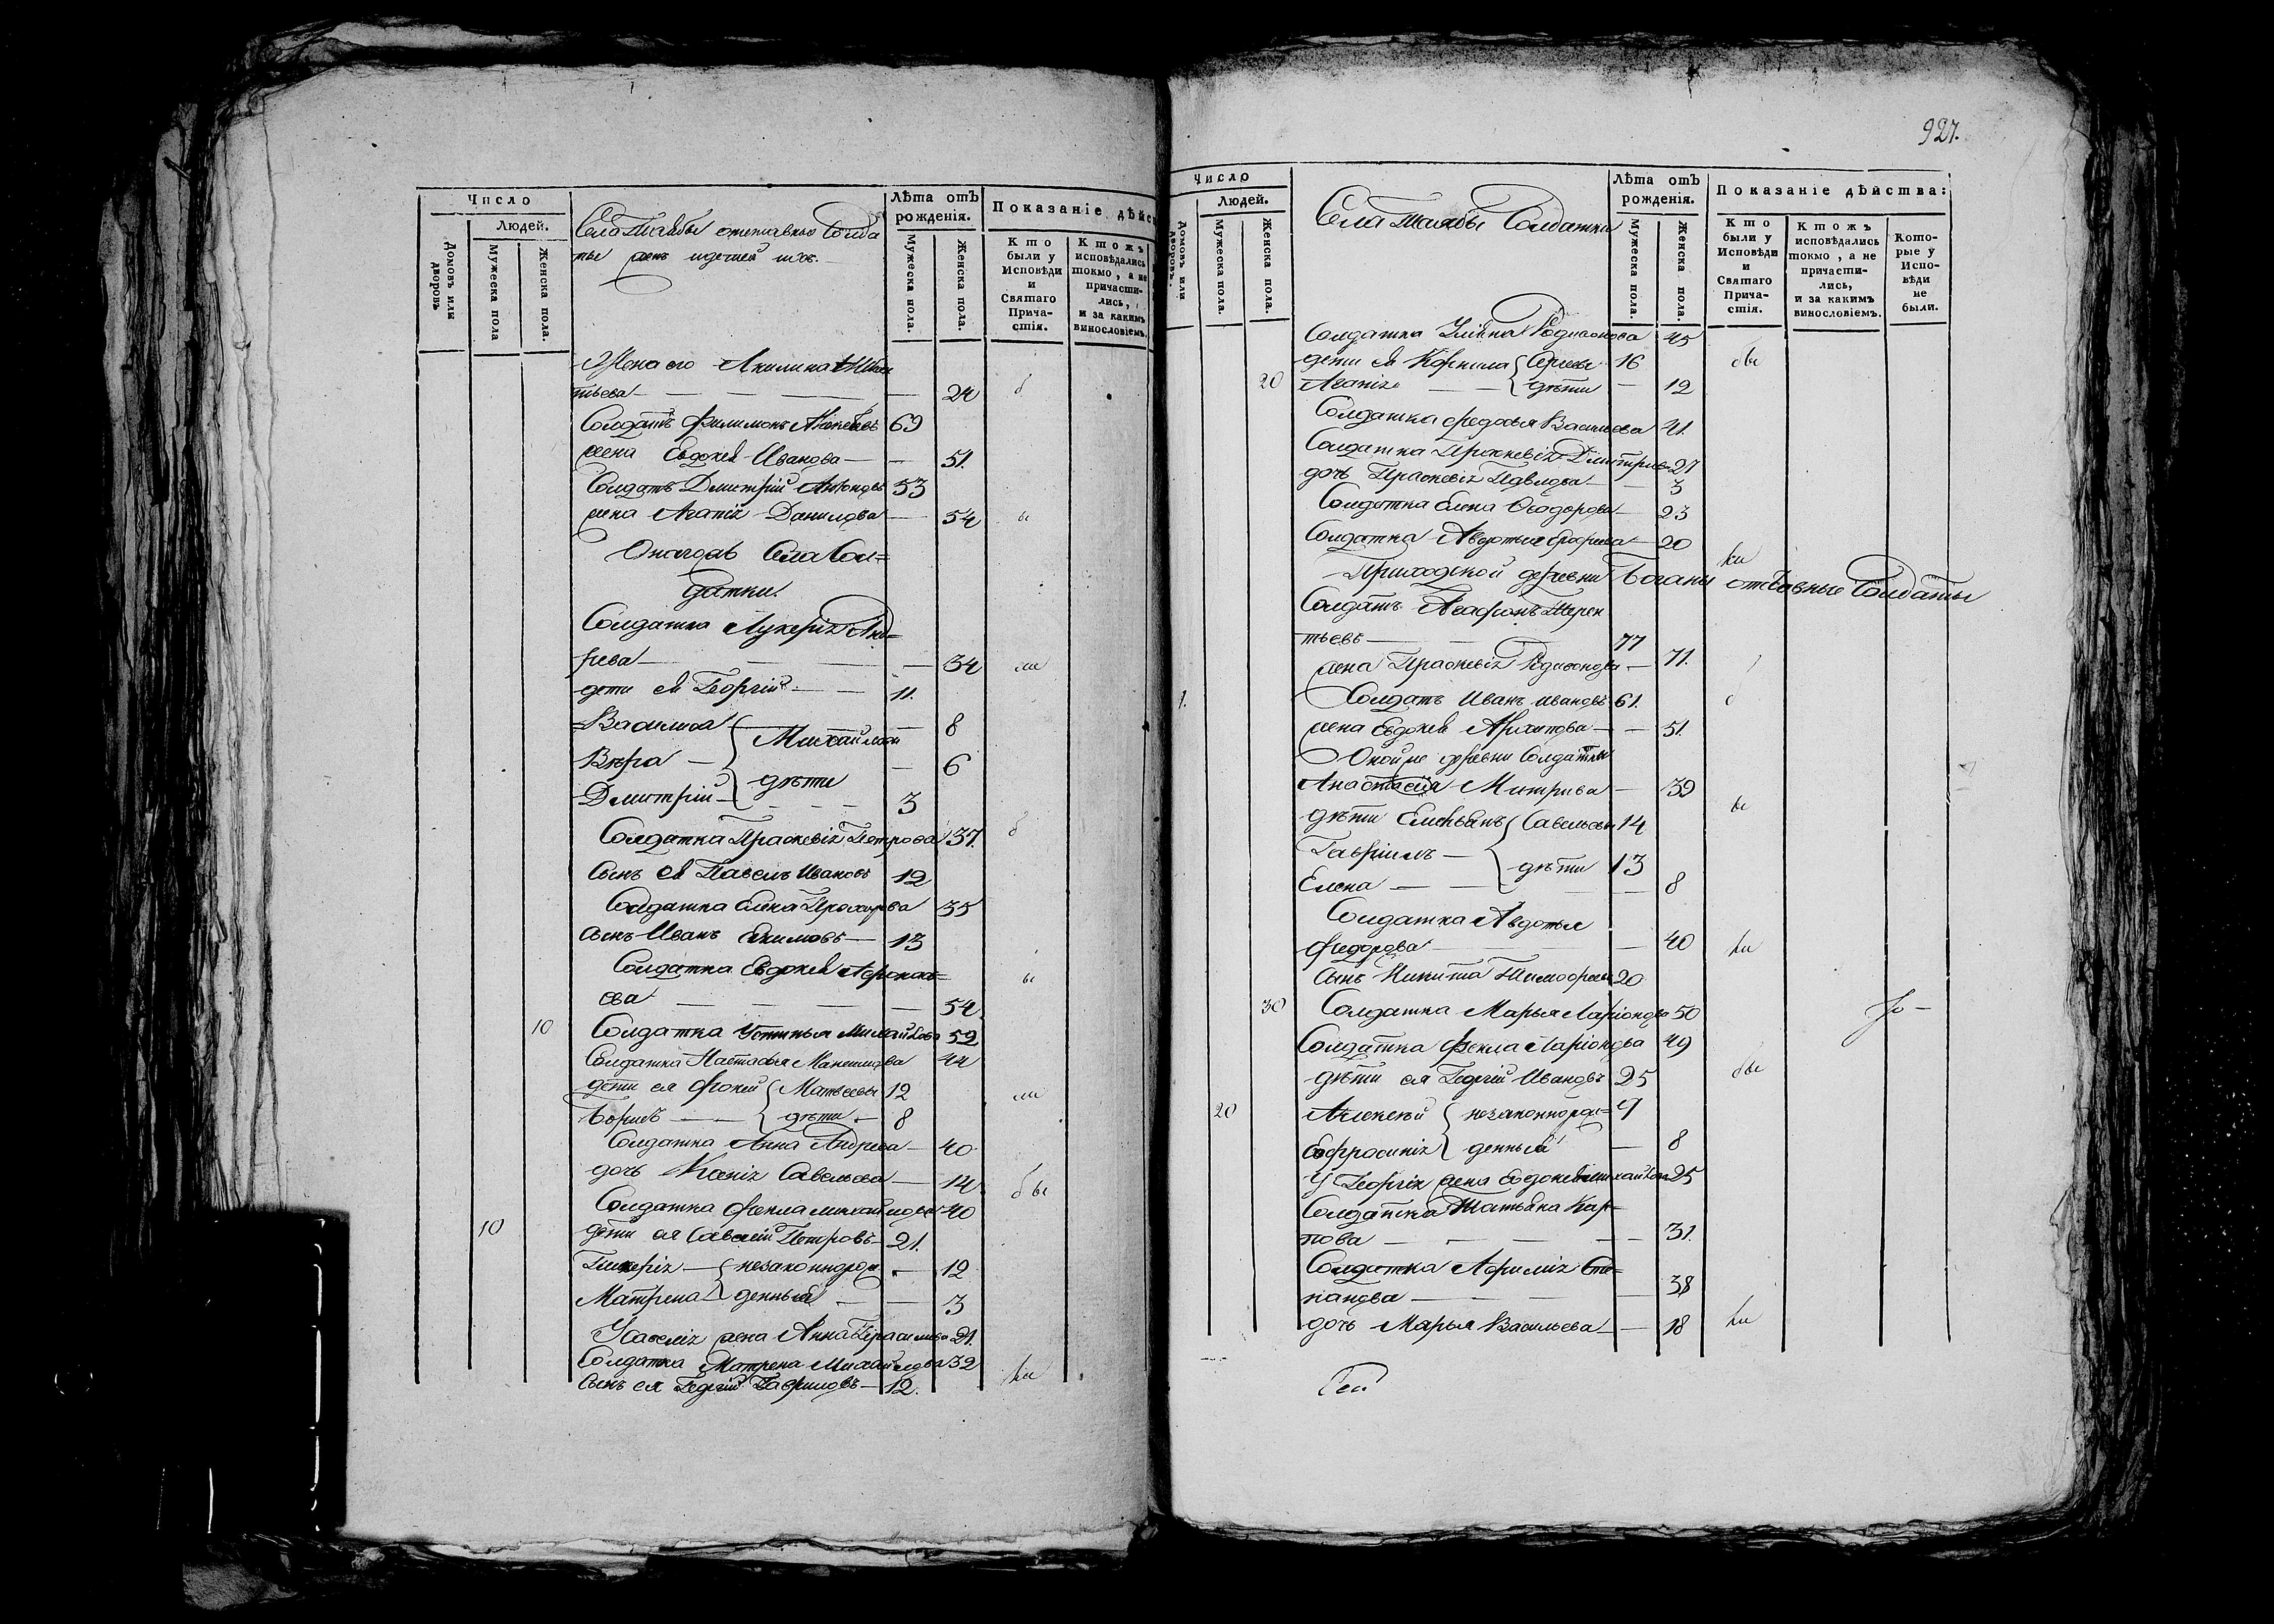 Число
Людей.
Домовъ или дворовъ
Мужеска пола
Женска пола.
Села Таябы отставные Солда
ты жены и дети ихъ.
Лѣта отъ рожденія.
Мужеска пола.
Женска пола.
Показаніе дѣйс
Кто были у Исповѣди и Святаго Прича-стія.
Ктожъ исповѣдались токмо, а не причасти-лись, и за какимъ винословіемъ.
Жена его Акилина
тьева — 24
Солдатъ Филимонъ 69
жена Евдокея Иванова — 51.
Солдатъ Дмитрій Антоновъ 53
жена Агапія Данилова — 54
Онагожъ Села Сол=
датки.
Солдатка Лукерія Анд=
реева — 34
дети ея Георгій — 11.
Василиса — 8
Михайловы
Вѣра — 6
дѣти
Дмитрій — 3
Солдатка Праскевія Петрова 37.
Сынъ ея Павелъ Ивановъ 12
Солдатка Елена Прохорова 35
сынъ Иванъ Екимовъ — 13
Солдатка Евдокея
ева — 54
10 Солдатка Устинья Михайлова 52
Солдатка Настасья 44
дети ея Фокей Матвеевы 12
Борисъ — дѣти — 8
Солдатка Анна Андреева — 40
дочь Ксенія Савельева — 14 бы
Солдатка Фекла Михайлова 40
10 дети ея Савелій Петровъ — 21.
Гликерія — незаконнорож — 12
Матрена денныя — 3
У Савелія жена Анна Герасимова 21.
Солдатка Матрена Михайлова 32
Сынъ ея Георгій Гавриловъ — 12. ли
927.
Число
Людей.
Домовъ или дворовъ.
Мужеска пола.
Женска пола.
Села Таябы Солдатки
Лѣта отъ рожденія.
Мужеска пола.
Женска пола.
Показаніе дѣйства:
Кто были у Исповѣди и Святаго Прича-стія.
Ктожъ исповѣдались токмо, а не причасти-лись, и за какимъ винословіемъ.
Кото-рые у Испо-вѣди не были.
Солдатка Родионова 45
дети ея Корнила Сергеевы 16 бы
20 Агапія — дѣти — 12
Солдатка Федосья Васильева 41.
Солдатка Праскевія Дмитрива 27
дочь Праскевія Павлова — 3
Солдатка Елена Ѳеодорова — 23
Солдатка Авдотья — 20 ли
Приходской деревни Боганы отставные Солдаты
Солдатъ Агафонъ Терен
тьевъ — 77
жена Праскевія Родионова — 71.
1. Солдатъ Иванъ Ивановъ 61. б
жена Евдокея Архипова — 51.
Онойже деревни Солдатки
Анастасія Митрива — 39
дѣти Емельянъ Савельевы 14
Гавріилъ — дѣти 13
Елена — 8
Солдатка Авдотья
Федорова — 40 ли
Сынъ Никита Тимофеевъ 20
30 Солдатка Марья Ларіонова 50
Солдатка Фекла Ларіонова 49
дѣти ея Георгій Ивановъ 25 бы
20 Алексей незаконнорож= 9
Евфросинія денныя — 8
У Георгія жена Евдокея Михайлова 25
Солдатка Татьяна Кар=
пова — 31.
Солдатка Афимія Сте=
панова — 38
дочь Марья Васильева — 18 ли